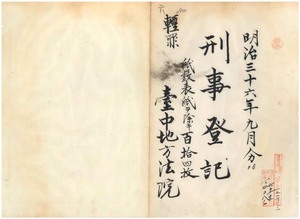 明治三十六年九月分
刑事登記
輕罪
紙数表紙ヲ除キ百拾四枚
臺中地方法院